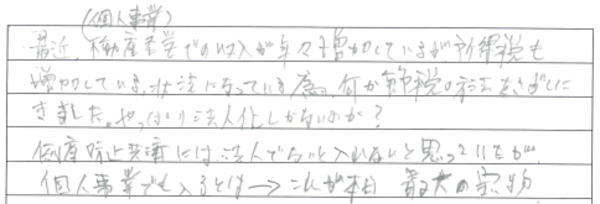 (個人事業)
最近、不動産業での収入が年々増加しているが所得税も
増加している状況になっている為、何か節税の方法をさがしに
きました。やっぱり法人化しかないのか?
倒産防止共済には法人でないと入れないと思っていたが、
個人事業でも入るとは→これが本日 最大の宝物